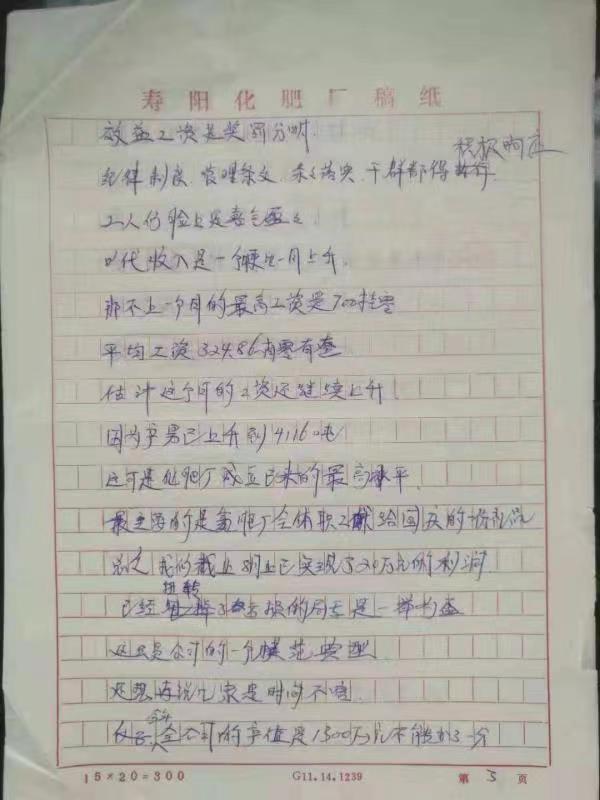 寿阳化肥厂稿纸
效益工资是奖罚分明
积极响应
纪律制度、管理条文、条条落实、干群都得
工人们脸上是喜色盈盈
收入是一个月比一月上升.
那不上一个月的最高工资是700挂零
平均工资324.86有零有整
估计这个月的工资还继续上升.
因为产量已上升到4116吨
这可是化肥厂成立已来的最高水平.
最主要的是氮肥厂全体职工献给国庆的好礼品
总之我们截止8月止已实现了20万元的利润
扭转
已经了亏损的局面是一举书查
这只是公司的一个模范典型
还想再说几家是时间不够.
今年
仅云全公司的产值是1300万元不能少3一分
15×20=300
G11.14.1239
第 5 页